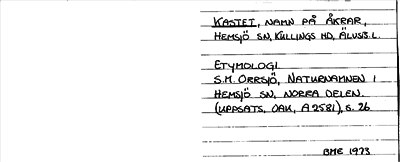 KASTET, NAMN PÅ ÅKRAR,
HEMSJÖ SN, KULLINGS HD, ÄLVSB. L.
ETYMOLOGI
S.M. ORRSJÖ, NATURNAMNEN I
HEMSJÖ SN, NORRA DELEN.
(UPPSATS, OAU, A 2581), S. 26
BME 1973